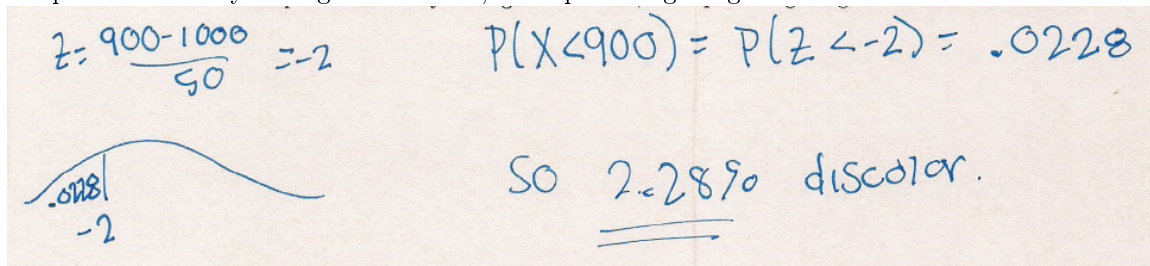 Z = 900-1000 / 50 = -2
P(X<900) = P(Z<-2) = .0228
.0228
-2
So 2.28% discolor.